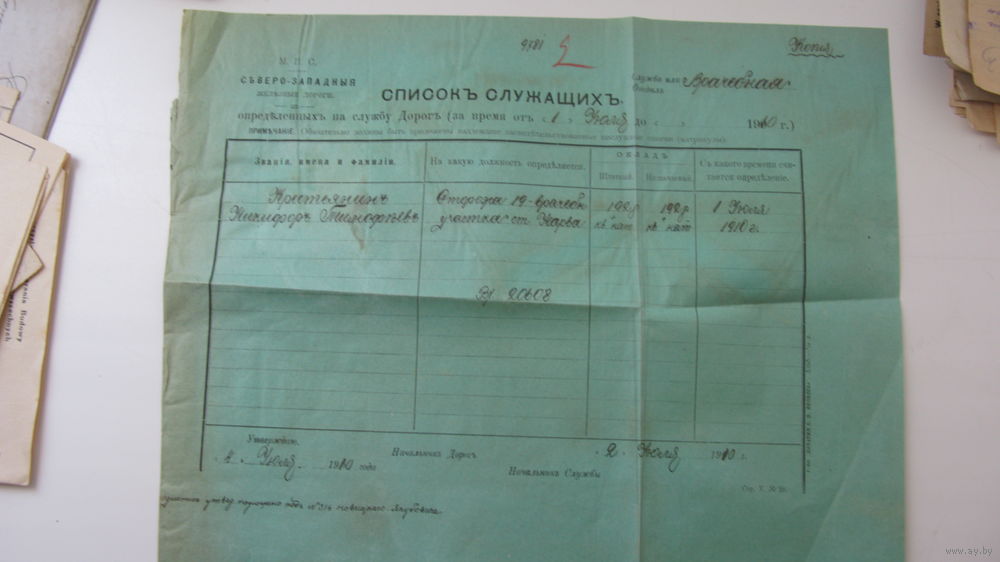 9781
Копія
М. П. С.
СѢВЕРО-ЗАПАДНЫЯ
желѣзныя дороги.
Служба или Врачебная
СПИСОКЪ СЛУЖАЩИХЪ,
опредѣленныхъ на службу Дорогъ (за время отъ „1 Іюля до „ 1910 г.)
ПРИМѢЧАНІЕ. Обязательно должны быть приложены надлежаще засвидѣтельствованные послужные списки
Званія, имена и фамиліи.
На какую должность опредѣляется.
ОКЛАДЪ
Штатный.
Назначаемый.
Съ какого времени счи-
тается опредѣленіе.
Крестьянинъ
Никифоръ Тимофѣевъ
Сторожа 19-врачебн
участка ст. Нарва
192 р
192 р
1 Іюля
1910 г.
20608
Утверждаю.
4 Іюля 1910 года
Начальникъ Дорогъ
2 Іюля 1910 г.
Начальникъ Службы
www.ay.by